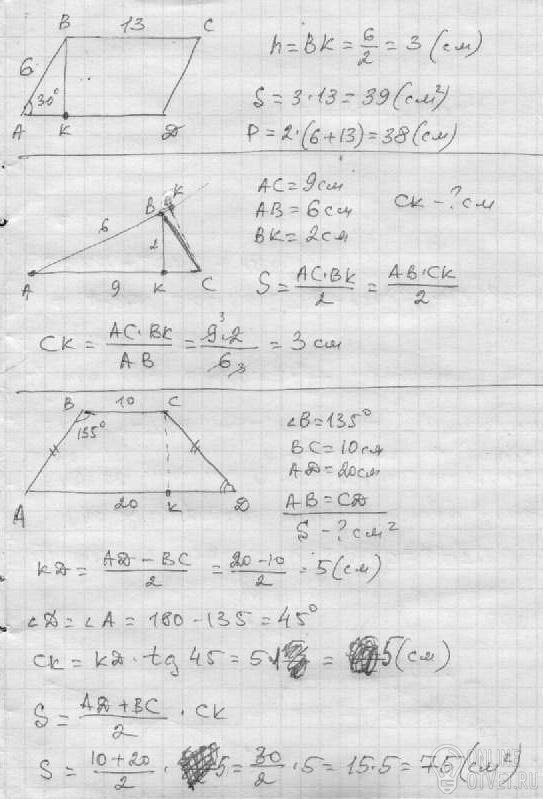 B 13 C
6
30°
A K D
h = BK = 6/2 = 3 (см)
S = 3·13 = 39 (см²)
P = 2·(6+13) = 38 (см)
B K
6
2
A 9 K C
AC = 9 см
AB = 6 см
BK = 2 см
CK - ? см
S = AC·BK/2 = AB·CK/2
CK = AC·BK/AB = 9·2/6 = 3 см
B 10 C
135°
A 20 K D
∠B = 135°
BC = 10 см
AD = 20 см
AB = CD
S - ? см²
KD = AD-BC/2 = 20-10/2 = 5 (см)
∠D = ∠A = 180-135 = 45°
CK = KD · tg 45 = 5·1 = 5 (см)
S = AD+BC/2 · CK
S = 10+20/2 · 5 = 30/2 · 5 = 15·5 = 75 (см²)
ONLINE
OTVET.RU